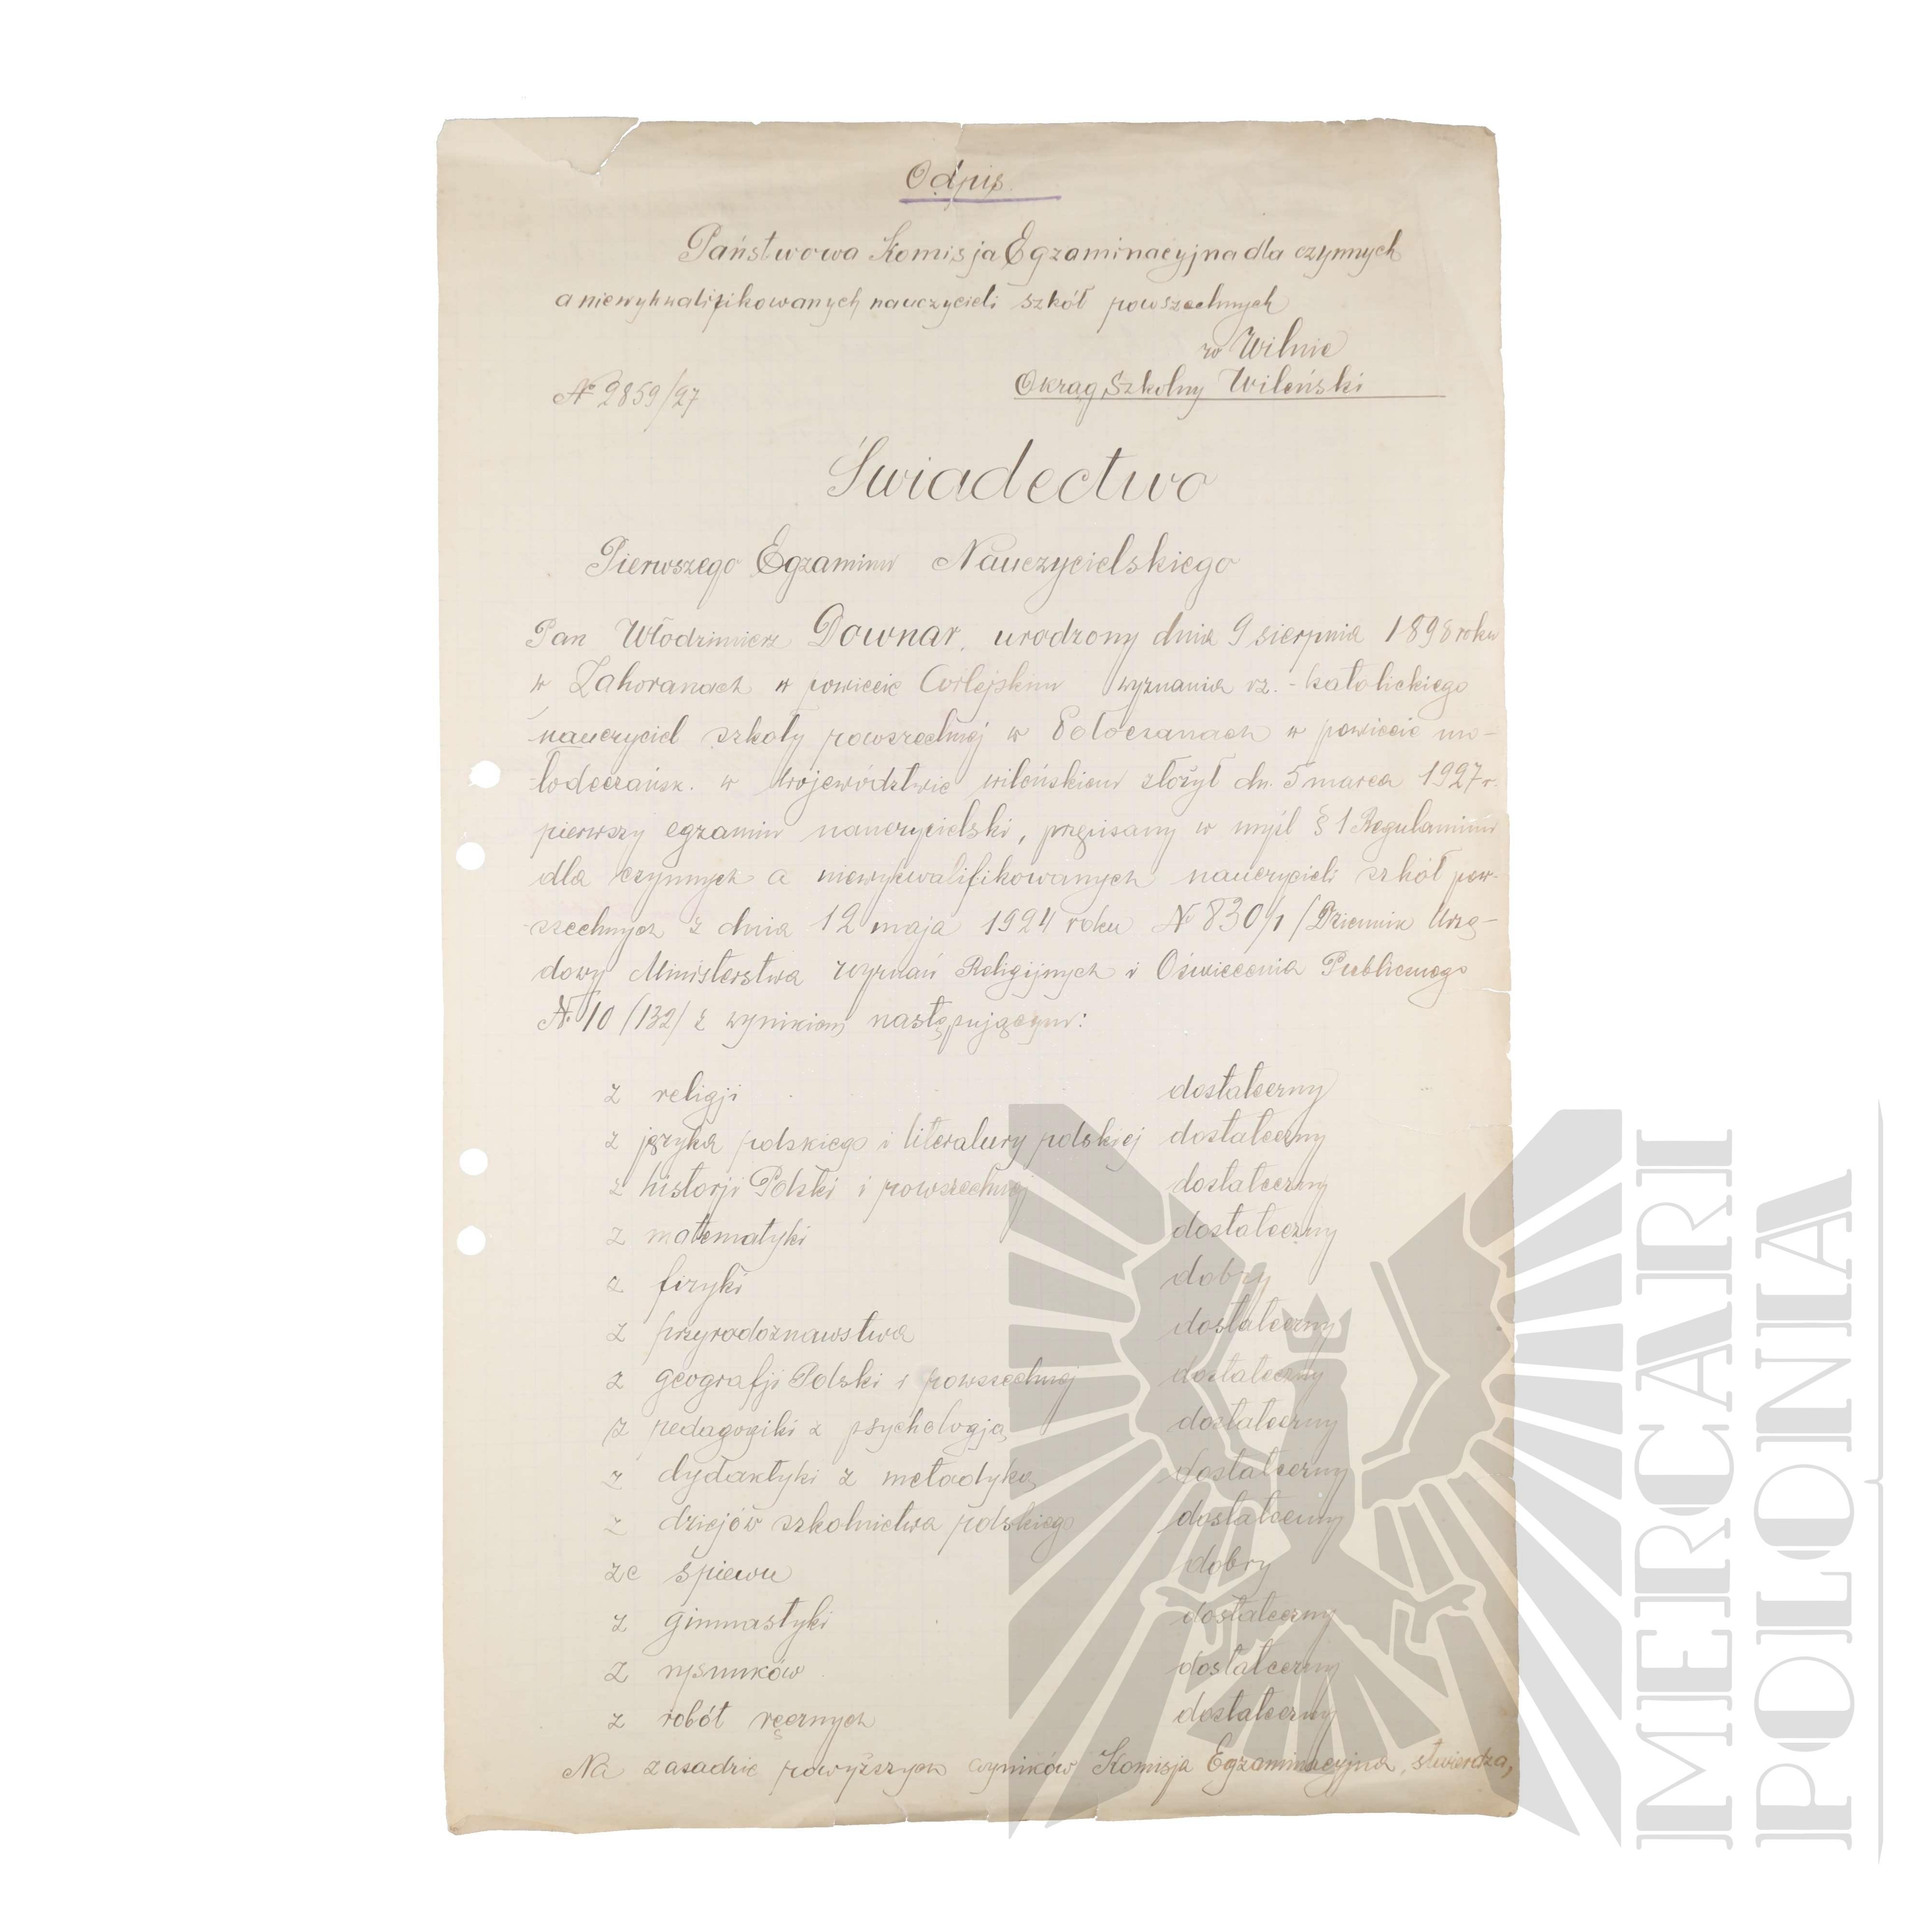 Odpis.
Państwowa Komisja Egzaminacyjna dla czynnych
a niewykwalifikowanych nauczycieli szkół powszechnych
w Wilnie
Okrąg Szkolny Wileński
№ 2859/27
Świadectwo
Pierwszego Egzaminu Nauczycielskiego
Pan Włodzimierz Downar, urodzony dnia 9 sierpnia 1898 roku
w Zahoranach w powiecie wyznania rz.-katolickiego
nauczyciel szkoły powszechnej w Potoczanach w powiecie mo-
łodeczańsk. w województwie wileńskiem złożył dn. 5 marca 1927 r.
pierwszy egzamin nauczycielski, przepisany w myśl § 1 Regulaminu
dla czynnych a niewykwalifikowanych nauczycieli szkół pow-
szechnych z dnia 12 maja 1924 roku № 830/1 /Dziennik Urzę-
dowy Ministerstwa Wyznań Religijnych i Oświecenia Publicznego
№ 10 /132/ z wynikiem następującym:
z religji dostateczny
z języka polskiego i literatury polskiej dostateczny
z historji Polski i powszechnej dostateczny
z matematyki dostateczny
z fizyki dobry
z przyrodoznawstwa dostateczny
z geografji Polski i powszechnej dostateczny
z pedagogiki z psychologją dostateczny
z dydaktyki z metodyką dostateczny
z dziejów szkolnictwa polskiego dostateczny
ze śpiewu dobry
z gimnastyki dostateczny
z rysunków dostateczny
z robót ręcznych dostateczny
Na zasadzie powyższych wyników Komisja Egzaminacyjna stwierdza,
MERCARI
POLONIA